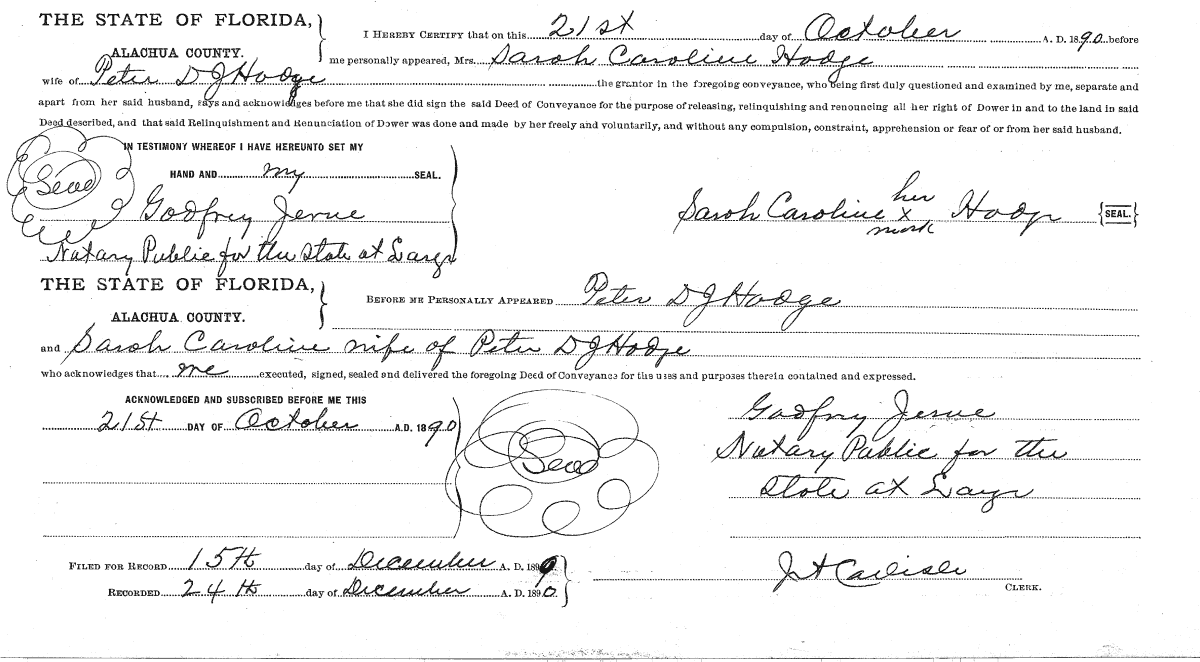 THE STATE OF FLORIDA,
ALACHUA COUNTY.
I HEREBY CERTIFY that on this 21st day of October A. D. 1890 before
me personally appeared, Mrs. Sarah Caroline Hodge
wife of Peter D J Hodge the grantor in the foregoing conveyance, who being first duly questioned and examined by me, separate and
apart from her said husband, says and acknowledges before me that she did sign the said Deed of Conveyance for the purpose of releasing, relinquishing and renouncing all her right of Dower in and to the land in said
Deed described, and that said Relinquishment and Renunciation of Dower was done and made by her freely and voluntarily, and without any compulsion, constraint, apprehension or fear of or from her said husband.
IN TESTIMONY WHEREOF I HAVE HEREUNTO SET MY
HAND AND my SEAL.
Seal
Godfrey Jerue
Notary Public for the State at Large
her
Sarah Caroline x Hodge {SEAL.}
mark
THE STATE OF FLORIDA,
ALACHUA COUNTY.
BEFORE ME PERSONALLY APPEARED Peter D J Hodge
and Sarah Caroline wife of Peter D J Hodge
who acknowledges that me executed, signed, sealed and delivered the foregoing Deed of Conveyance for the uses and purposes therein contained and expressed.
ACKNOWLEDGED AND SUBSCRIBED BEFORE ME THIS
21st DAY OF October A.D. 1890
Seal
Godfrey Jerue
Notary Public for the
State at Large
FILED FOR RECORD 15th day of December A. D. 1890.
RECORDED 24th day of December A. D. 1890
Carlisle
CLERK.